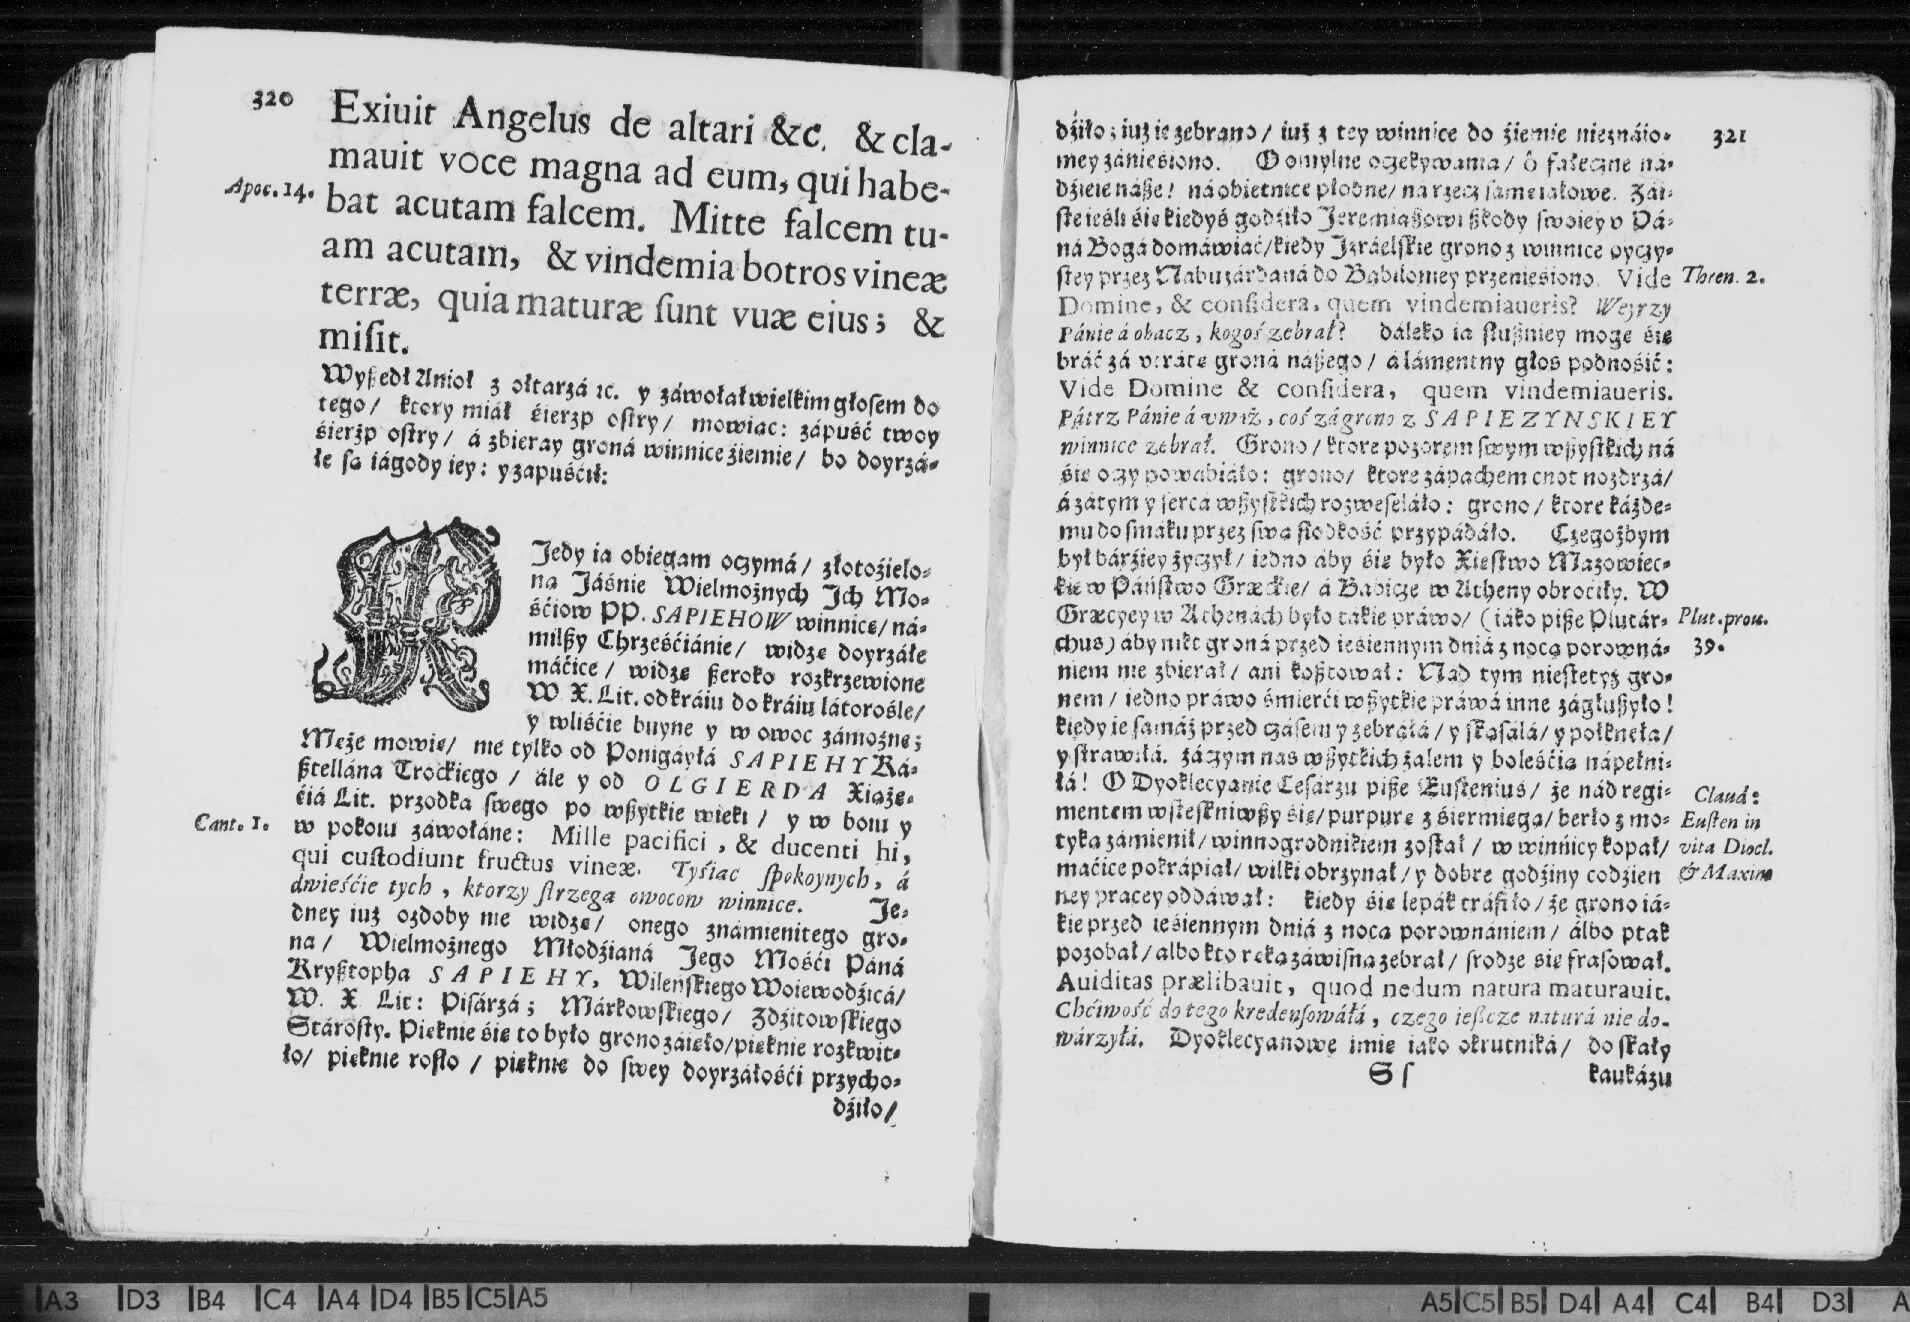 320
Exiuit Angelus de altari &c. & cla-
mauit voce magna ad eum, qui habe-
Apoc. 14.
bat acutam falcem. Mitte falcem tu-
am acutam, & vindemia botros vineæ
terræ, quia maturæ ſunt vuæ eius; &
miſit.
Wyßedł Anioł z ołtarzá ꝛc. y záwołał wielkim głoſem do
tego/ ktory miáł śierzp oſtry/ mowiąc: zápuść twoy
śierzp oſtry/ á zbieray groná winnice źiemie/ bo doyrzá-
łe ſą iágody iey: y zapuśćił:
KJedy ia obiegam oczymá/ złotoźielo-
na Jáśnie Wielmożnych Jch Mo-
śćiow PP. SAPIEHOW winnice/ ná-
milßy Chrześćiánie/ widzę doyrzáłe
máćice/ widzę ßeroko rozkrzewione
W. X. Lit. od kráiu do kráiu látorośle/
y w liśćie buyne y w owoc zámożne;
Męże mowię/ nie tylko od Ponigáyłá SAPIEHY Ká-
ßtellána Trockiego / ále y od OLGIERDA Xiążę-
ćiá Lit. przodka ſwego po wßytkie wieki / y w boiu y
Cant. 1.
w pokoiu záwołáne: Mille pacifici, & ducenti hi,
qui cuſtodiunt fructus vineæ. Tyśiąc ſpokoynych, á
dwieśćie tych, ktorzy ſtrzegą owocow winnice. Je-
dney iuż ozdoby nie widzę/ onego známienitego gro-
na/ Wielmożnego Młodźianá Jego Mośći Páná
Kryßtopha SAPIEHY, Wileńſkiego Woiewodźicá/
W. X. Lit: Piſárzá; Márkowſkiego/ Zdźitowſkiego
Stároſty. Pięknie śię to było grono záięło/ pięknie rozkwit-
ło/ pięknie roſło / pięknie do ſwey doyrzáłośći przycho-
dźiło/
321
dźiło; iuż ie zebrano/ iuż z tey winnice do źiemie nieznáio-
mey zánieśiono. O omylne oczekywania/ ô fałeczne ná-
dźieie náße! ná obietnice płodne/ na rzecz ſámę iałowe. Zái-
ſte ieśli śię kiedyś godźiło Jeremiaßowi ßkody ſwoiey v Pá-
ná Bogá domáwiáć/ kiedy Jzráelſkie grono z winnice oyczy-
ſtey przez Nabuzárdaná do Bábiloniey przenieśiono. Vide
Thren. 2.
Domine, & conſidera, quem vindemiaueris? Weyrzy
Pánie á obacz, kogoś zebrał? dáleko ia ſłußniey mogę śię
bráć zá vtrátę groná náßego/ á lámentny głos podnośić:
Vide Domine & conſidera, quem vindemiaueris.
Pátrz Pánie á vważ, coś zá grono z SAPIEZYNSKIEY
winnice zebrał. Grono/ ktore pozorem ſwym wßyſtkich ná
śię oczy powabiáło: grono/ ktore zápachem cnot nozdrzá/
á zátym y ſercá wßyſtkich rozweſeláło: grono/ ktore káżde-
mu do ſmáku przez ſwą ſłodkość przypádáło. Czegożbym
był bárźiey życzył/ iedno áby śię było Xięſtwo Mázowiec-
kie w Páńſtwo Græckie/ á Babicze w Atheny obroćiły. W
Græcyey w Athenách było tákie práwo/ (iáko piße Plutár-
Plut. prou.
chus) áby nikt groná przed ieśiennym dniá z nocą porowná-
39.
niem nie zbierał/ ani koßtował: Nád tym nieſtetyż gro-
nem/ iedno práwo śmierći wßytkie práwá inne zágłußyło!
kiedy ie ſamáż przed czáſem y zebráłá/ y ſkąſálá/ y połknęła/
y ſtrawiłá. zá czym nas wßytkich żalem y boleśćią nápełni-
łá! O Dyoklecyanie Ceſarzu piße Euſtenius/ że nád regi-
Claud:
mentem wſteſkniwßy śię/ purpurę z śiermięgą/ berło z mo-
Euſten in
tyką zámienił/ winnogrodnikiem zoſtał/ w winnicy kopał/
vita Diocl.
maćice pokrápiał/ wilki obrzynał/ y dobre godźiny codzien
& Maxim
ney pracey oddáwał: kiedy śię lepák tráfiło/ że grono iá-
kie przed ieśiennym dniá z nocą porownániem/ álbo ptak
pozobał/ albo kto ręką záwiſną zebrał/ ſrodze się fraſował.
Auiditas prælibauit, quod nedum natura maturauit.
Chćiwość do tego kredenſowáłá, czego ießcze naturá nie do-
wárzyłá. Dyoklecyanowe imię iako okrutniká/ do ſkáły
Sſ
kaukázu
A3 D3 B4 C4 A4 D4 B5 C5 A5
A5 C5 B5 D4 A4 C4 B4 D3 A